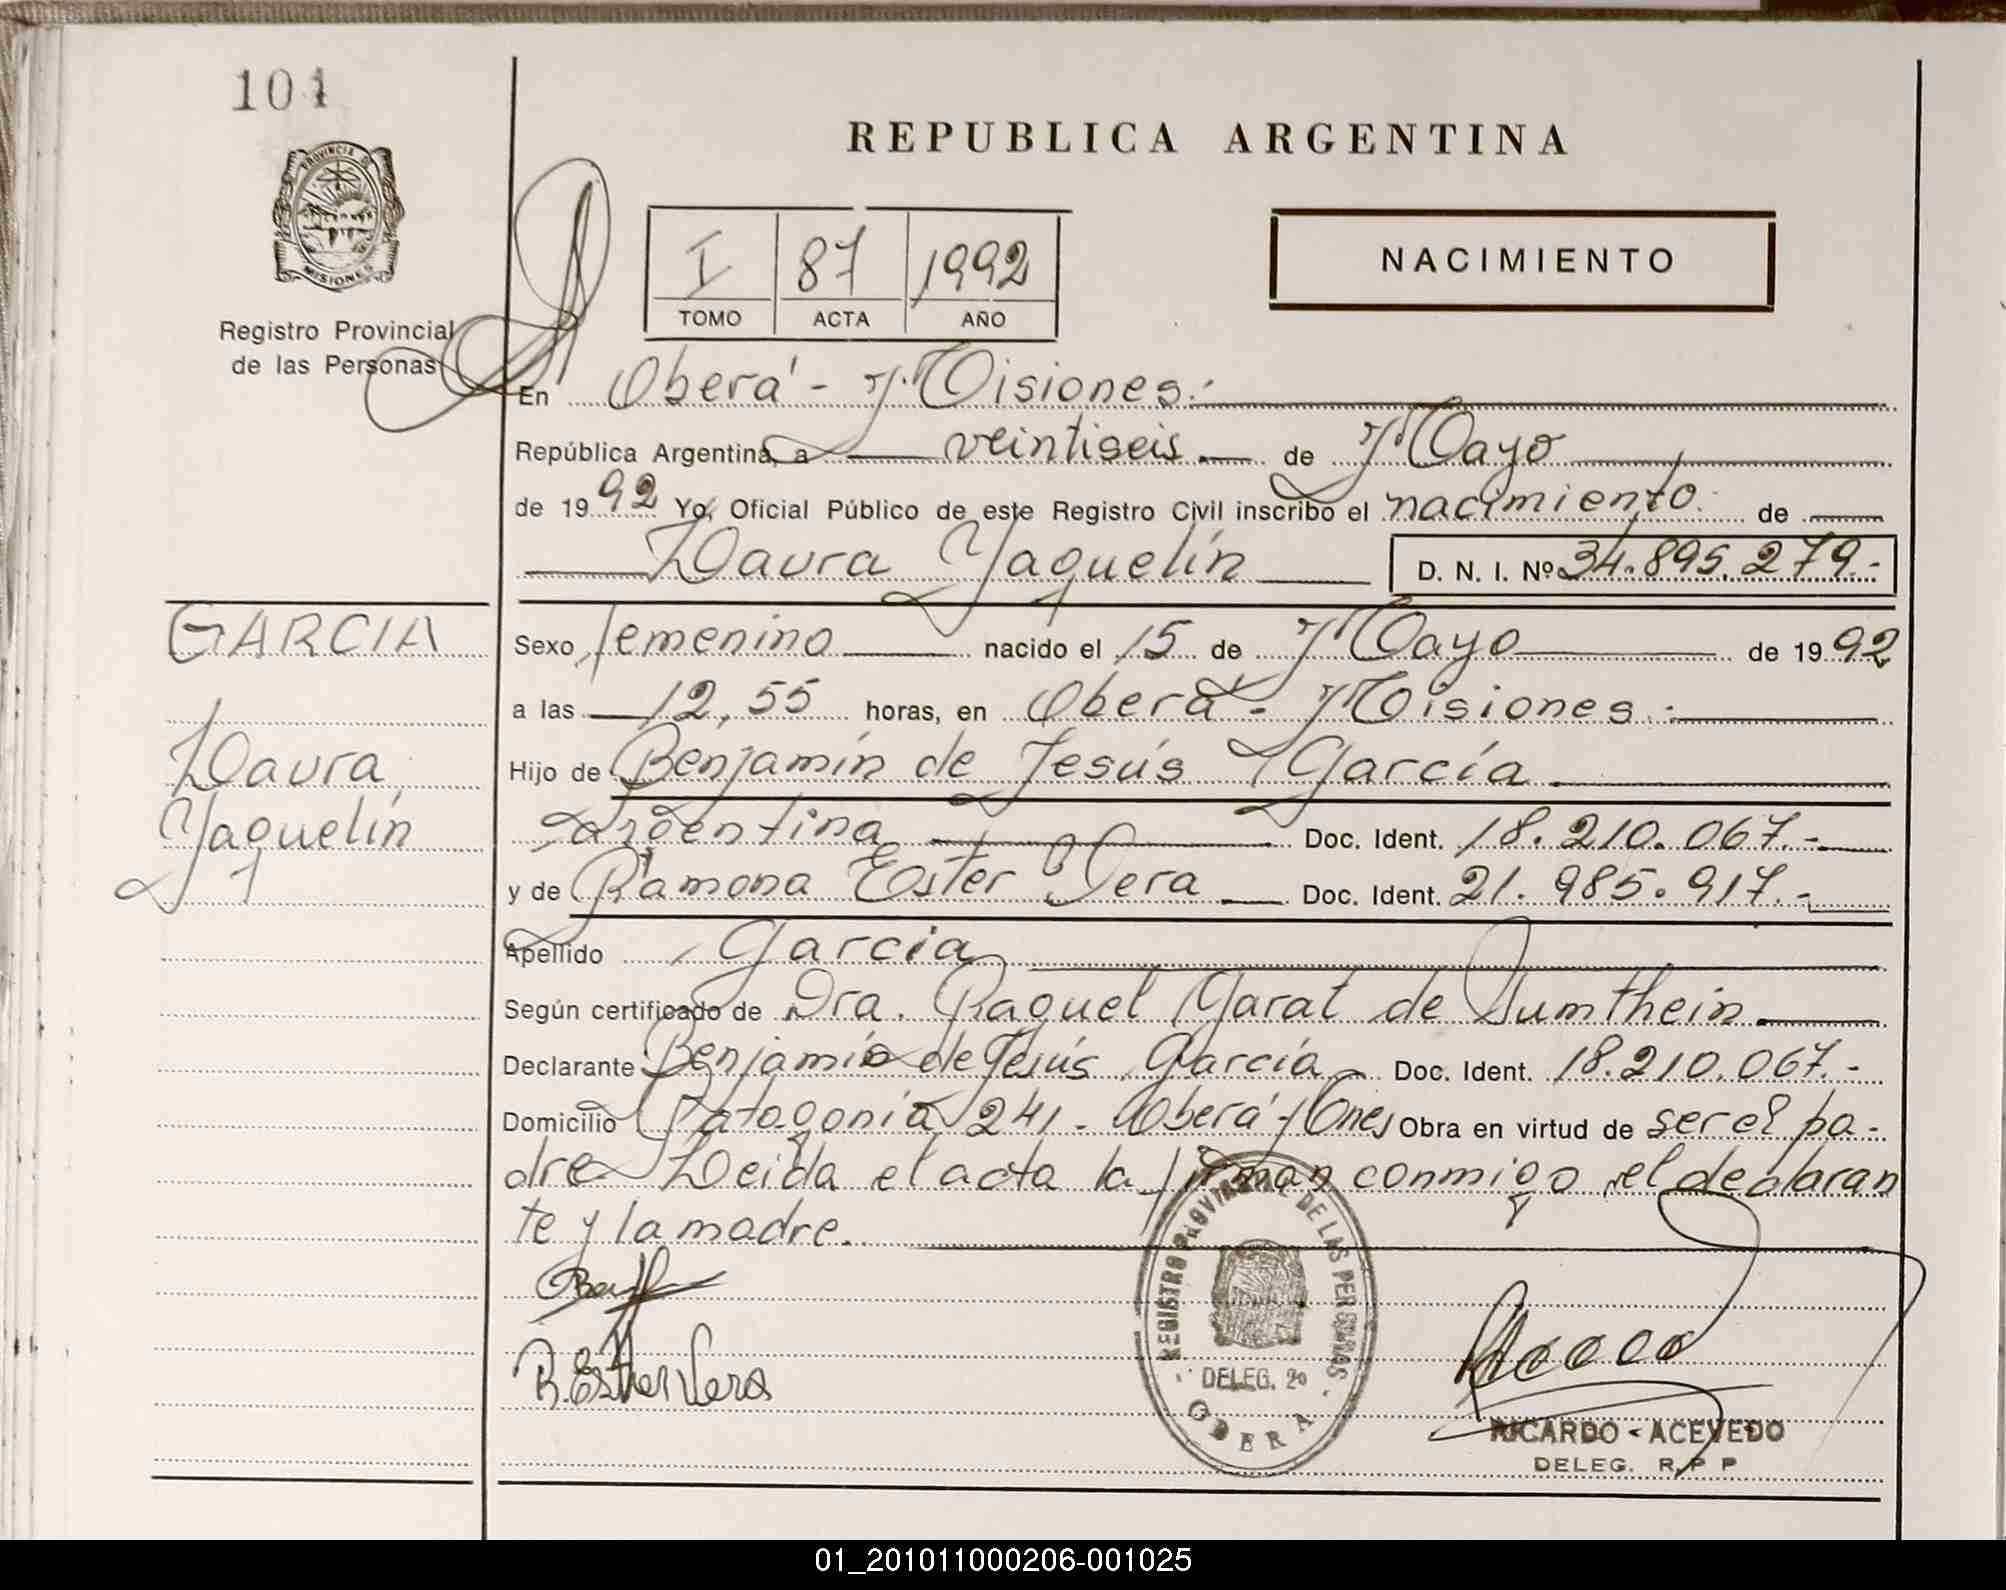 101
PROVINCIA DE
MISIONES
Registro Provincial
de las Personas
REPUBLICA ARGENTINA
I 87 1992
TOMO ACTA AÑO
NACIMIENTO
En Oberá - Misiones.-
República Argentina, a veintiseis de Mayo
de 1992 Yo, Oficial Público de este Registro Civil inscribo el nacimiento de
Laura Yaquelín D. N. I. Nº 34.895.279.-
GARCIA
Laura
Yaquelín
Sexo femenino nacido el 15 de Mayo de 1992
a las 12,55 horas, en Oberá - Misiones.-
Hijo de Benjamín de Jesús García
Argentina Doc. Ident. 18.210.067.-
y de Ramona Ester Vera Doc. Ident. 21.985.917.-
Apellido García
Según certificado de Dra. Raquel Garat de Sumthein
Declarante Benjamín de Jesús García Doc. Ident. 18.210.067.-
Domicilio Patagonia 241 - Oberá - Mnes Obra en virtud de ser el pa-
dre Leída el acta la firman conmigo el declaran
te y la madre.
R. Esther Vera
REGISTRO PROVINCIAL DE LAS PERSONAS
DELEG. 2º
OBERA
RICARDO ACEVEDO
DELEG. R. P P
01_201011000206-001025